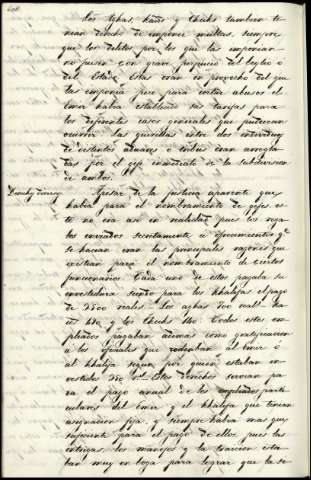 Los Aghas, kaids y Cheiks tambien te-
nian derecho de imponer multas, siempre
que los delitos por los que las imponian
no fuesen con grave perjuicio del beylio ó
del Estado. Estas eran en provecho del que
las imponia pero para evitar abusos el
Emir habia establecido sus tarifas para
los diferentes casos generales que pudiesen
ocurrir las querellas entre dos individuos
de distintos aduares ó tribus eran arregla-
das por el gefe inmediato de la subdivision
de ambos.
Apesar de la justicia aparente que
habia para el nombramiento de gefes es-
to no era asi en realidad pues los rega-
los enviados secretamente ú ofrecimientos qe
se hacian eran las principales razones que
existian para el nombramiento de ciertos
funcionarios. Cada uno de estos pagaba su
investidura siendo para los khalifas el pago
de reales los aghas
y los Cheiks Todos estos em-
pleados pagaban ademas como gratificacion
a los oficiales que rodeaban al Emir ó
al khalifa segun por quien estaban in-
vestidos Estos derechos servian pa-
ra el pago anual de los empleados parti-
culares del Emir y el khalifa que tenian
asignacion fija, y siempre habia mas que
suficiente para el pago de ellos, pues las
intrigas, los manejos y la traicion esta-
ban muy en boga para lograr que la se-